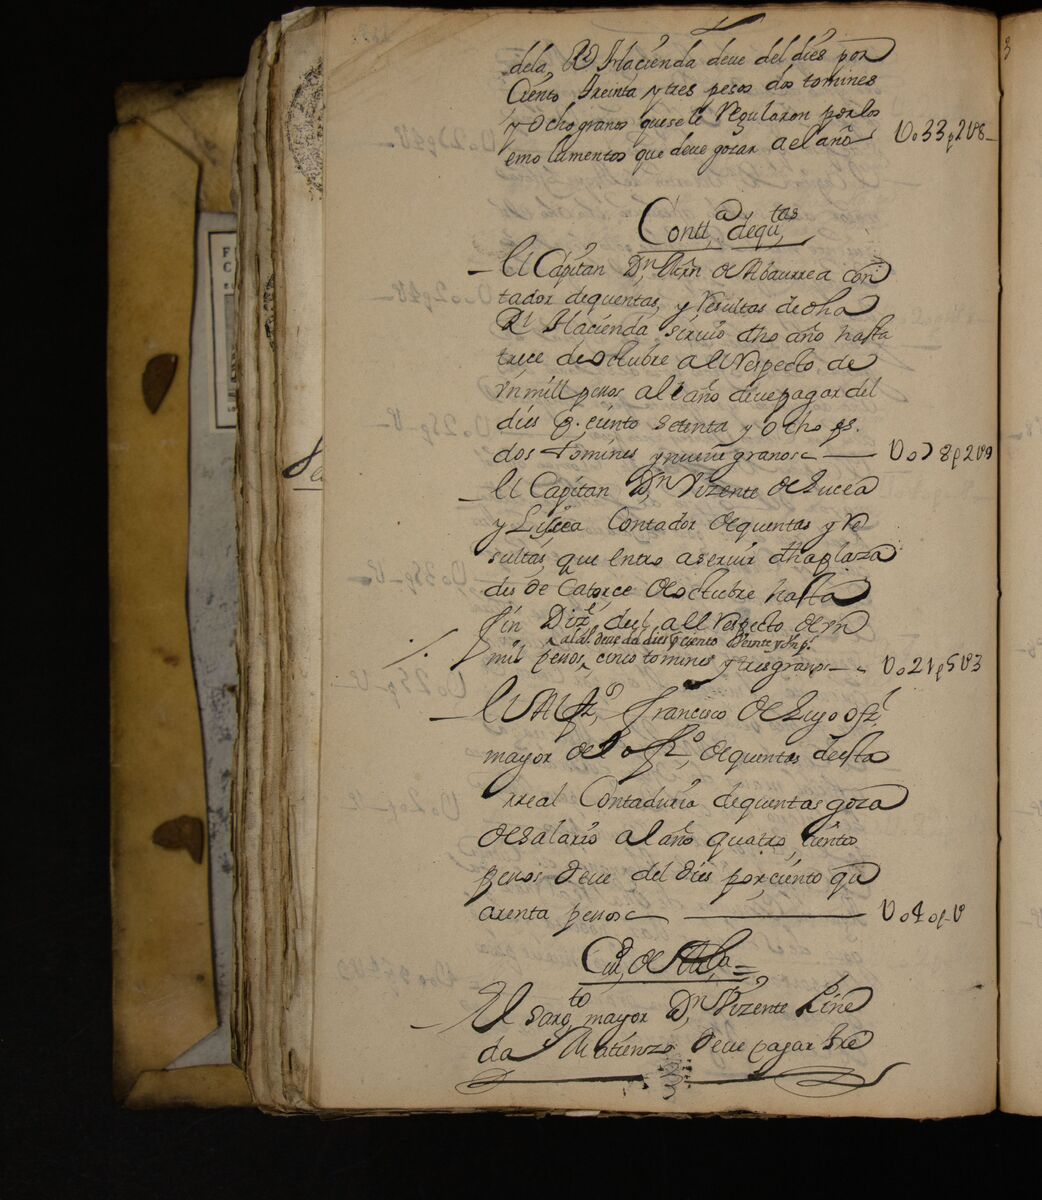 dela Rl Hacienda deve del dies por
Ciento treinta y tres pesos dos tomines
y ocho granos que se le Regularon por los
emolumentos que deve gozar a el año Uo33p2U8
Conta dequtas
El Capitan Dn Mrn de Abaurrea con
tador dequentas, y Resultas de dha
Rl Hacienda sirvio dho año hasta
trece de octubre al Respecto de
Un mill pesos al año deve pagar del
dies p. ciento setenta y ocho ps.
dos tomines y nueve granos Uo78p2U9
El Capitan Dn Vizente de Lucea
y Contador dequentas y Re
sultas, que entro a servir dha plaza
desde Catorce de octubre hasta
fin Dize del al Respecto de Un
al dl deve da dies p ciento Veinte y Un ps
mil pesos, cinco tomines y tres granos Uo21p5U3
El Alfz, Francisco de Luyo ofzl
mayor del dequentas desta
rreal Contaduria dequentas goza
de salario al año quatro, cientos
pesos deve del dies por ciento qu
arenta pesos Uo4op U
Ciud, de Mla
El Sargto mayor Dn Vizente Pine
da Matienzo Deve pagar tre